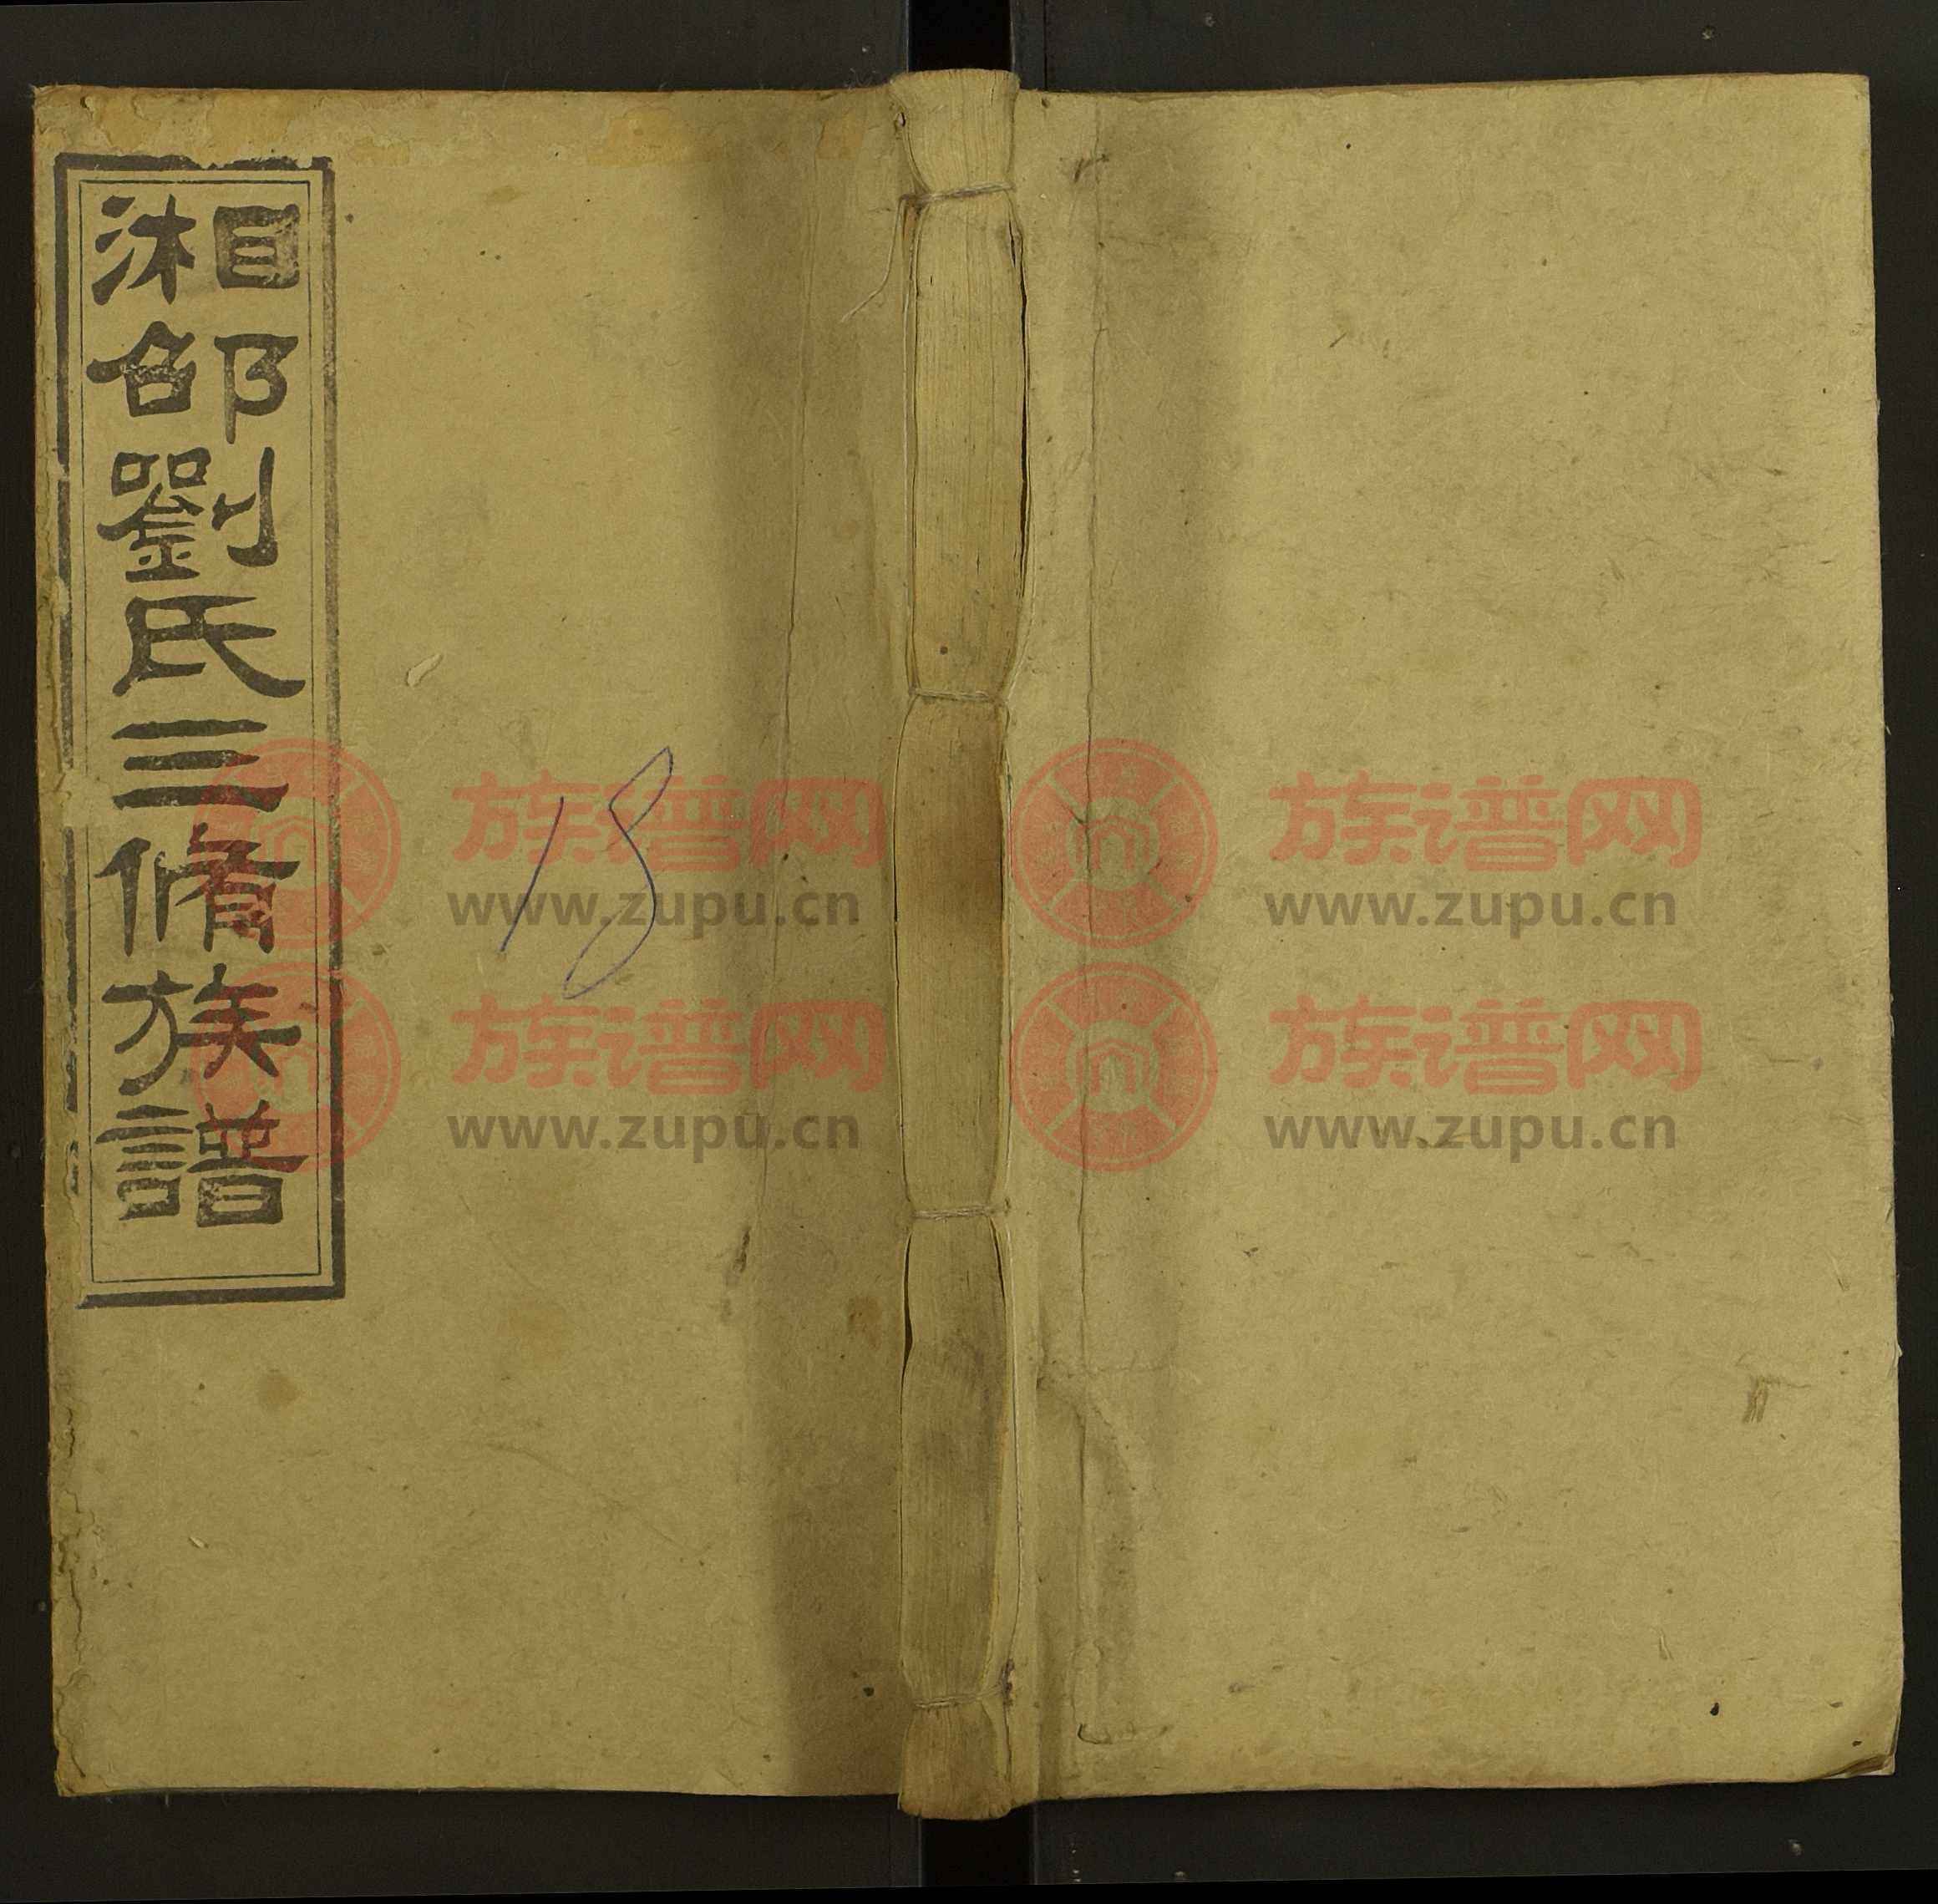 湘邵劉氏三脩族譜
18
族谱网
www.zupu.cn
族谱网
www.zupu.cn
族谱网
www.zupu.cn
族谱网
www.zupu.cn